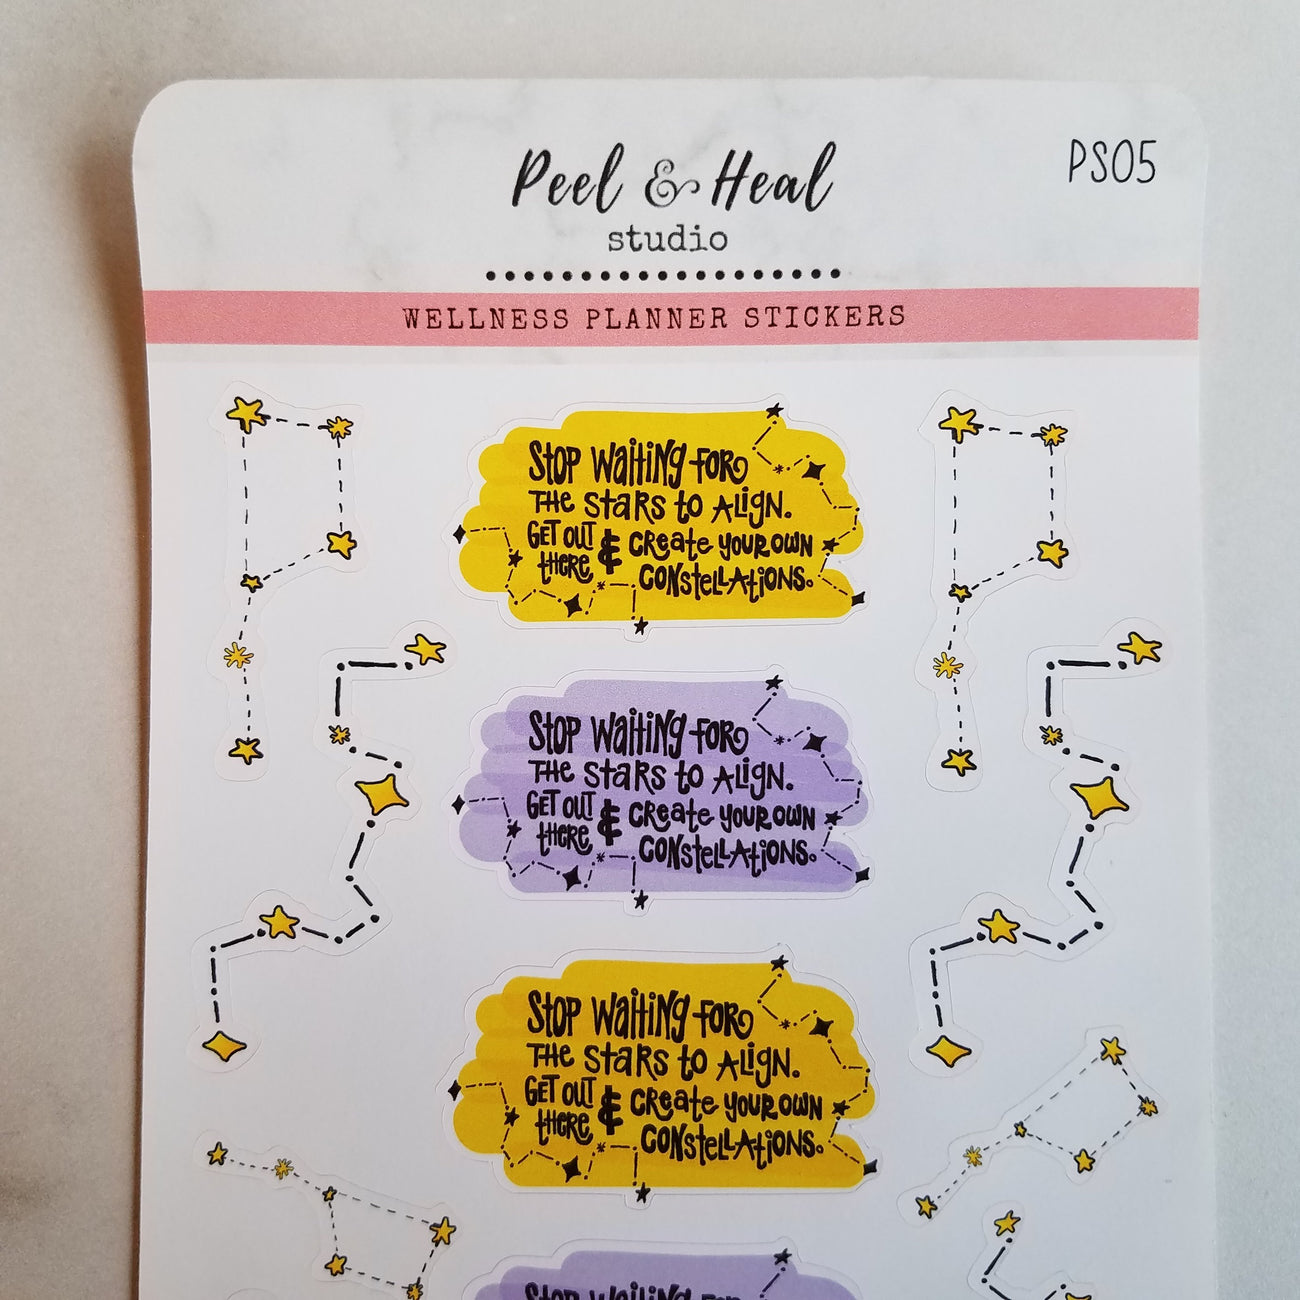 Peel & Heal
PS05
studio
WELLNESS PLANNER STICKERS
Stop waiting for
the stars to align.
Get out there & create your own
constellations.
Stop waiting for
the stars to align.
Get out there & create your own
constellations.
Stop waiting for
the stars to align.
Get out there & create your own
constellations.
Stop waiting for